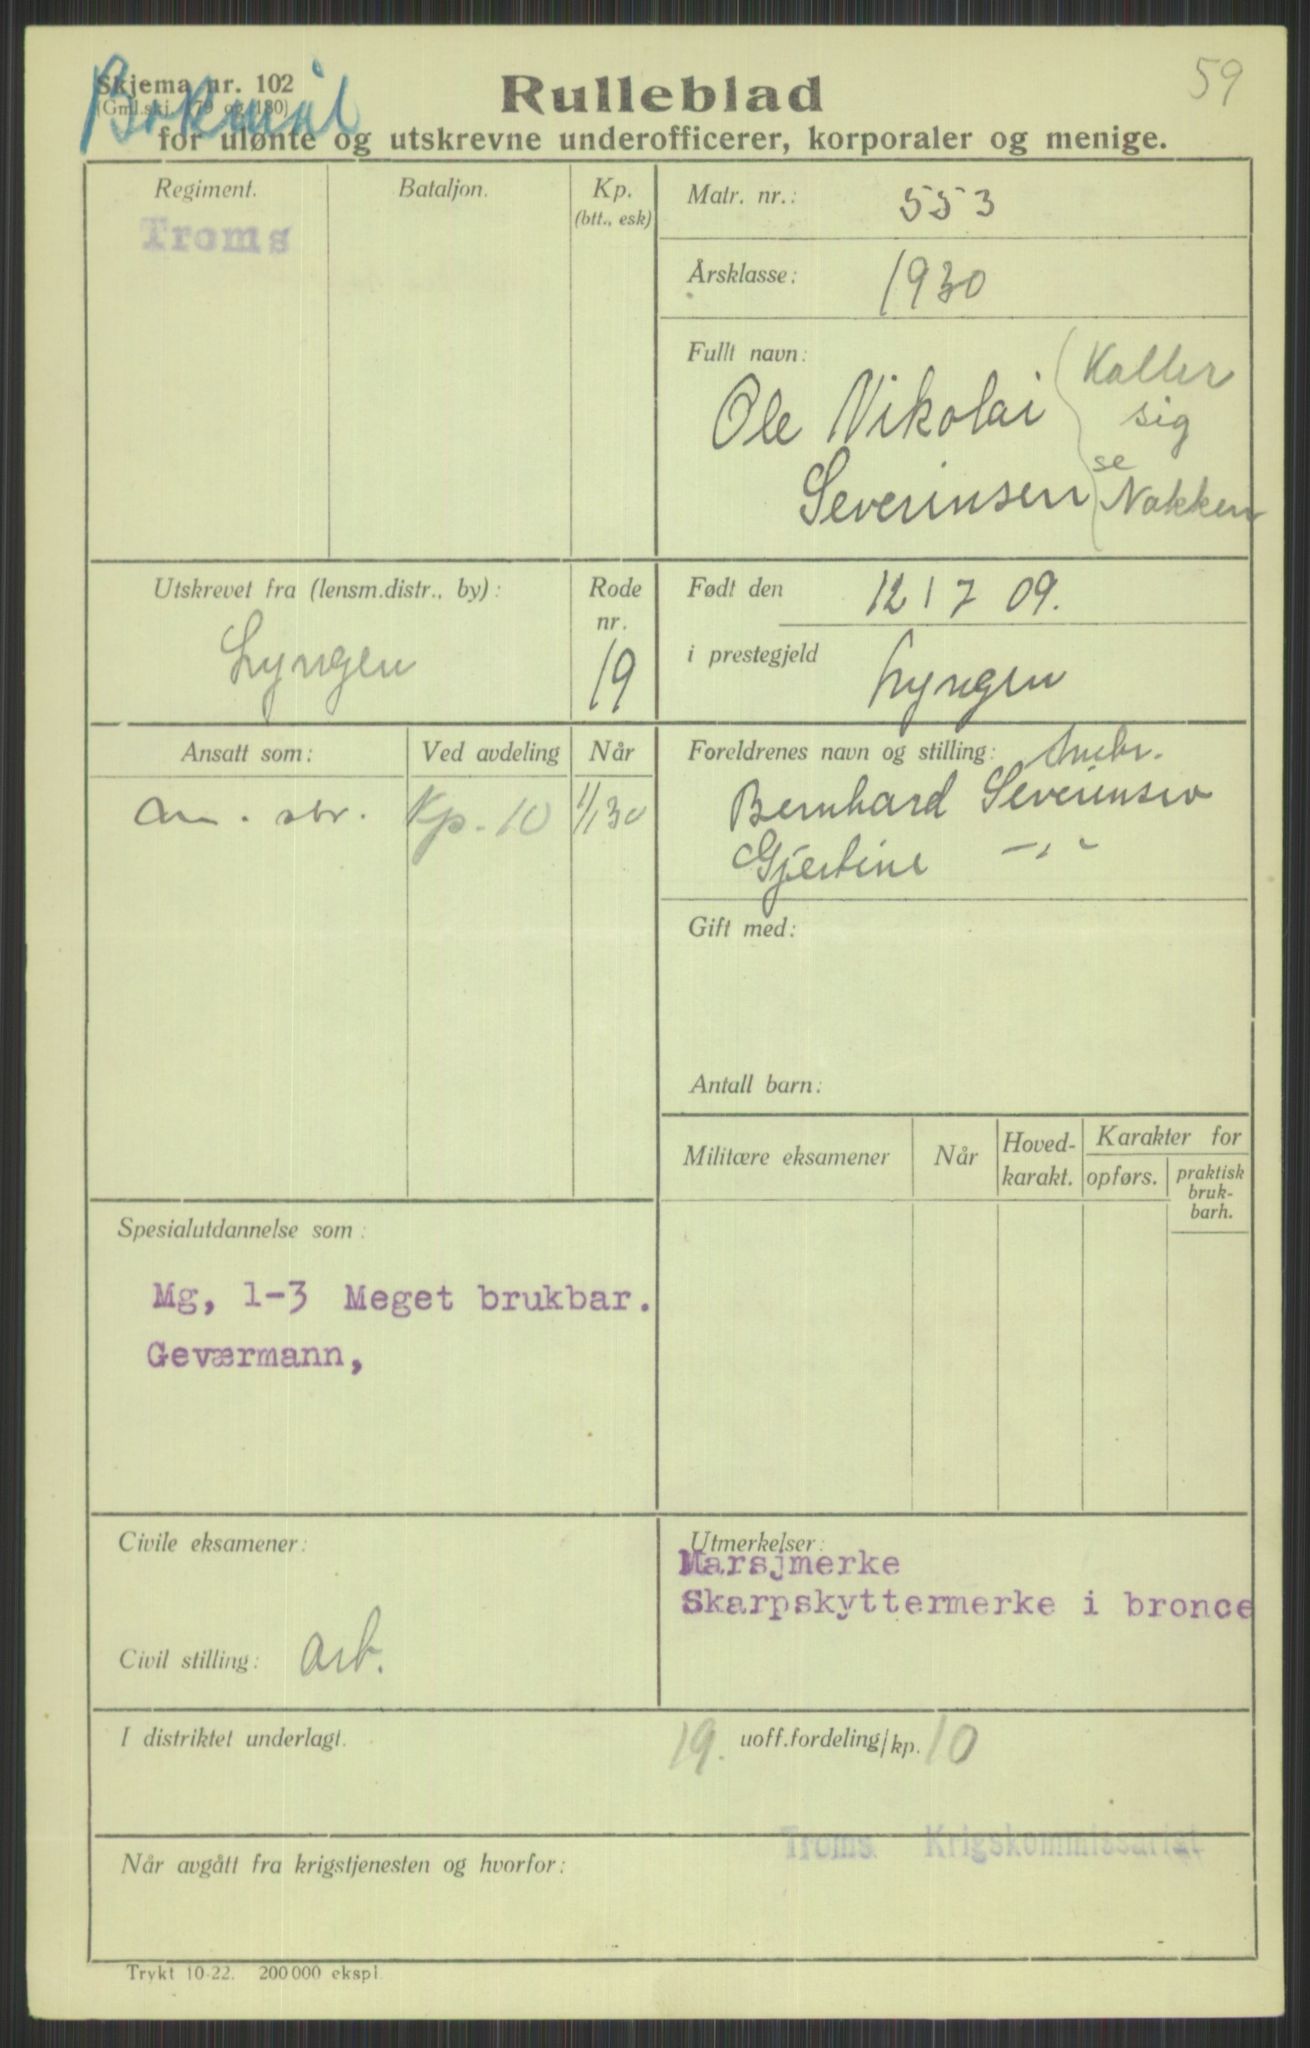 59
Skjema nr. 102
Bokmål
(Gml.skj. 179 og 180)
Rulleblad
for ulønte og utskrevne underofficerer, korporaler og menige.
Regiment.
Troms
Bataljon.
Kp.
(btt., esk)
Matr. nr.: 553
Årsklasse: 1930
Fullt navn:
Ole Nikolai
Severinsen
Kaller
sig
se
Nakken
Utskrevet fra (lensm.distr., by):
Lyngen
Rode
nr.
19
Født den 12 / 7 09.
i prestegjeld Lyngen
Ansatt som:
Ved avdeling
Når
Kp. 10
1/1 30
Foreldrenes navn og stilling:
Bernhard Severinsen
Gjertine -"-
Gift med:
Antall barn:
Militære eksamener
Når
Hoved-
karakt.
Karakter for
opførs.
praktisk
bruk-
barh.
Spesialutdannelse som:
Mg, 1-3 Meget brukbar.
Geværmann,
Civile eksamener:
Civil stilling: arb.
Utmerkelser:
Marsjmerke
Skarpskyttermerke i bronce
I distriktet underlagt.
19. uoff.fordeling/kp. 10
Troms Krigskommissariat
Når avgått fra krigstjenesten og hvorfor:
Trykt 10-22. 200 000 ekspl.